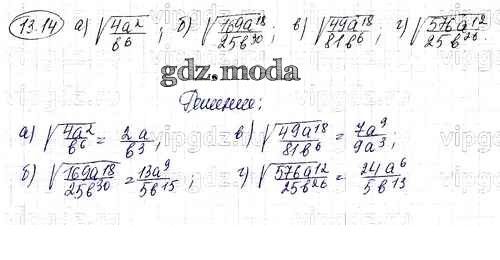 13.14 а) √(4a²/b⁶); б) √(169a¹⁸/25b³⁰); в) √(49a¹⁸/81b⁶); г) √(576a¹²/25b²⁶)
gdz.moda
Решение;
а) √(4a²/b⁶) = 2a/b³; в) √(49a¹⁸/81b⁶) = 7a⁹/9a³;
б) √(169a¹⁸/25b³⁰) = 13a⁹/5b¹⁵; г) √(576a¹²/25b²⁶) = 24a⁶/5b¹³